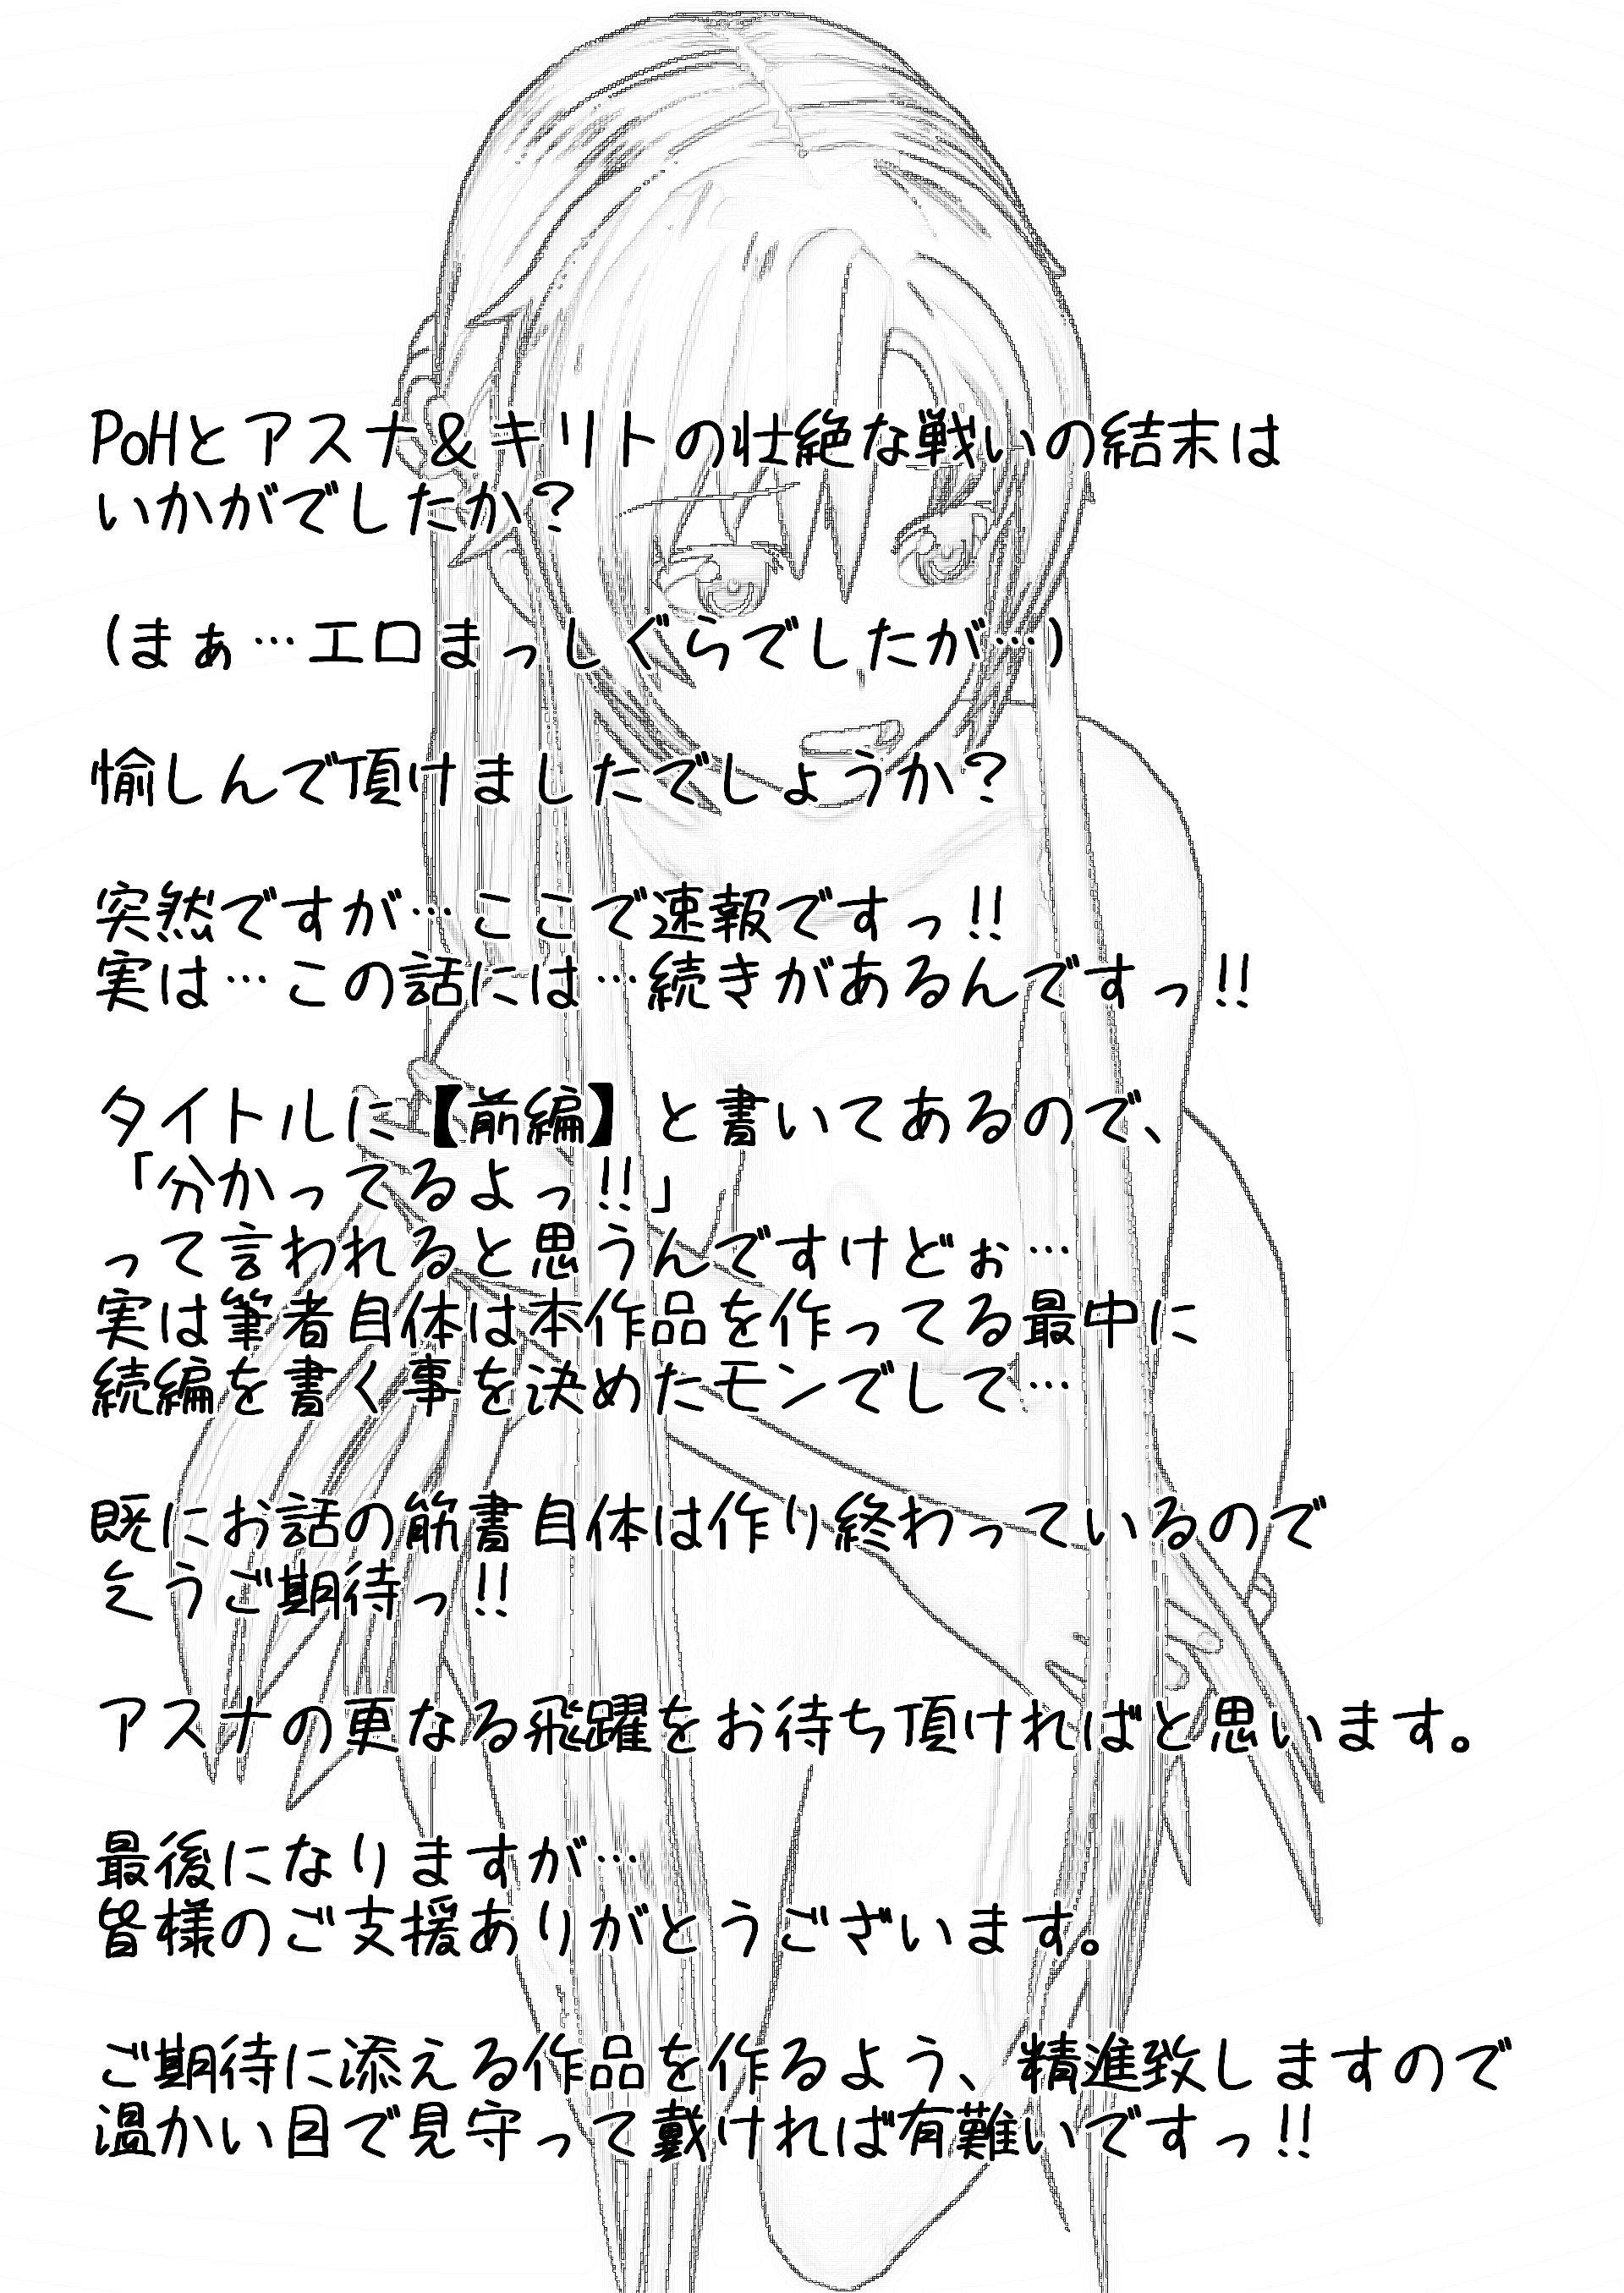 PoHとアスナ＆キリトの壮絶な戦いの結末は
いかがでしたか？
（まぁ…エロまっしぐらでしたが…）
愉しんで頂けましたでしょうか？
突然ですが…ここで速報ですっ!!
実は…この話には…続きがあるんですっ!!
タイトルに【前編】と書いてあるので、
「分かってるよっ!!」
って言われると思うんですけどぉ…
実は筆者自体は本作品を作ってる最中に
続編を書く事を決めたモンでして…
既にお話の筋書自体は作り終わっているので
乞うご期待っ!!
アスナの更なる飛躍をお待ち頂ければと思います。
最後になりますが…
皆様のご支援ありがとうございます。
ご期待に添える作品を作るよう、精進致しますので
温かい目で見守って戴ければ有難いですっ!!